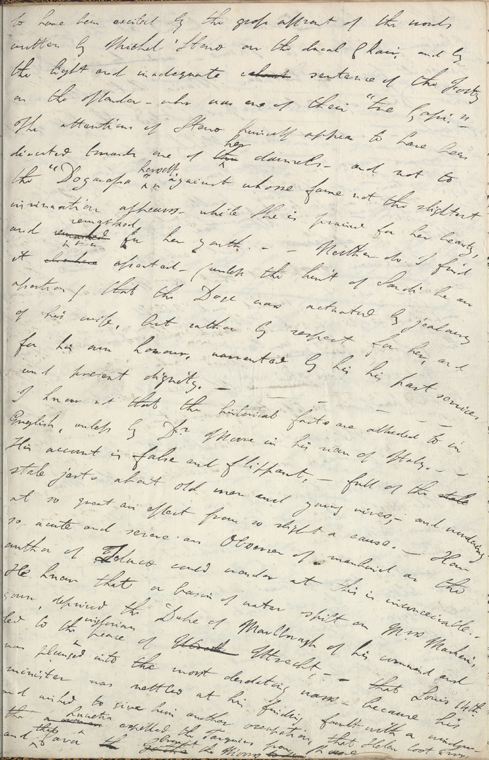 to have been excited by the gross affront of the words
written by Michel Steno on the ducal Chair, and by
the light and inadequate sentence of the Forty
on the offender - who was one of their "tre Capi." -
The attentions of Steno himself appear to have been
directed towards one of her damsels - and not to
the "Dogaressa" herself against whose fame not the slightest
insinuation appears - while she is praised for her beauty,
and remarked for her youth. - - Neither do I find
it asserted - (unless the hint of Sandi be an
assertion) that the Doge was actuated by jealousy
of his wife, but rather by respect for her, and
for his own honour, warranted by his past services
and present dignity. -
I know not that the historical facts are alluded to in
English, unless by Dr Moore in his view of Italy. -
His account is false and flippant, - full of
stale jests about old men and young wives, - and wondering
at so great an effect from so slight a cause. - How
so acute and severe an Observer of mankind as the
author of Zeluco could wonder at this is inconceivable. -
He knew that a basin of water spilt on Mrs Masham's
gown, deprived the Duke of Marlborough of his command and
led to the inglorious peace of Utrecht, - that Louis 14th
was plunged into the most desolating wars - because his
minister was nettled at his finding fault with a window
and wished to give him another occupation, that Helen lost Troy
that Lucretia expelled the Tarquins from
and that Cava brought the Moors to